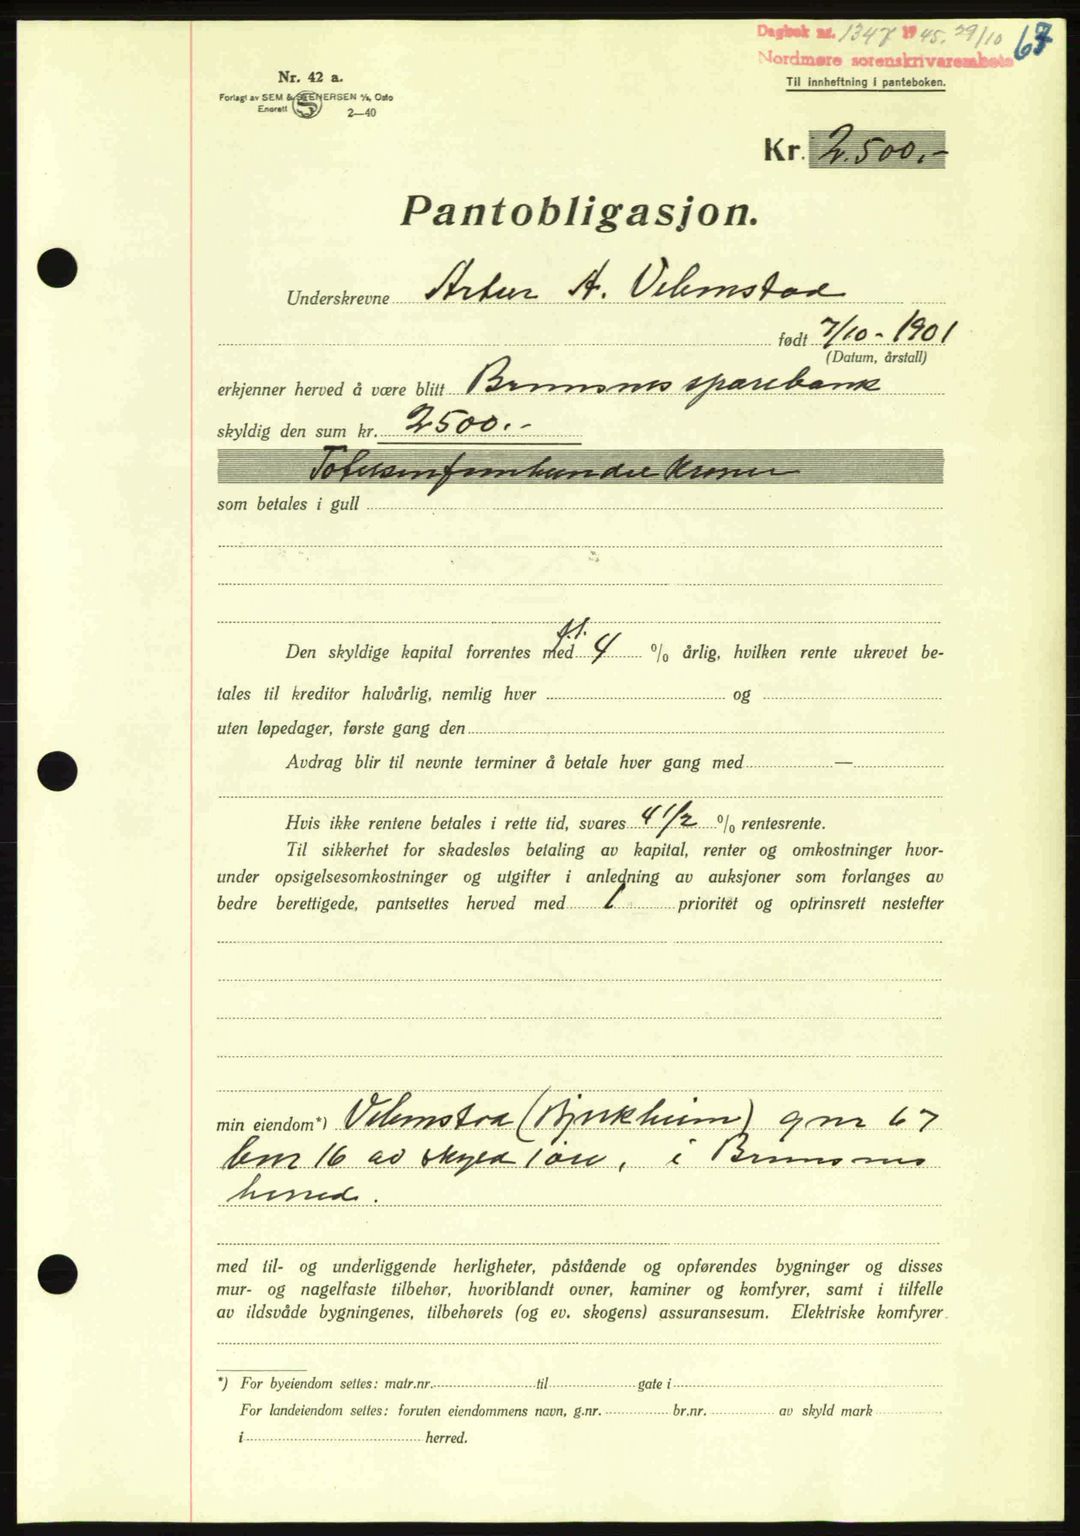 Dagbok nr. 1347 1945. 29/10
67
Nordmøre sorenskriverembete
Til innheftning i panteboken.
Nr. 42 a.
Forlagt av SEM & STENERSEN A/S, Oslo
Enerett S 2—40
Kr. 2.500.-
Pantobligasjon.
Underskrevne Artur A. Vebenstad
født 7/10 - 1901
(Datum, årstall)
erkjenner herved å være blitt Bremsnes sparebank
skyldig den sum kr. 2500.-
Totusenfemhundre kroner
som betales i gull
f.t.
Den skyldige kapital forrentes med 4 % årlig, hvilken rente ukrevet be-
tales til kreditor halvårlig, nemlig hver og
uten løpedager, første gang den
Avdrag blir til nevnte terminer å betale hver gang med —
Hvis ikke rentene betales i rette tid, svares 4 1/2 % rentesrente.
Til sikkerhet for skadesløs betaling av kapital, renter og omkostninger hvor-
under opsigelsesomkostninger og utgifter i anledning av auksjoner som forlanges av
bedre berettigede, pantsettes herved med 1 prioritet og optrinsrett nestefter
min eiendom*) Vebenstad (Bjerkheim) gnr 67
bnr 16 av skyld 1 øre, i Bremsnes
herred.
med til- og underliggende herligheter, påstående og opførendes bygninger og disses
mur- og nagelfaste tilbehør, hvoriblandt ovner, kaminer og komfyrer, samt i tilfelle
av ildsvåde bygningenes, tilbehørets (og ev. skogens) assuransesum. Elektriske komfyrer
*) For byeiendom settes: matr.nr. til gate i
For landeiendom settes: foruten eiendommens navn, g.nr. br.nr. av skyld mark
i herred.